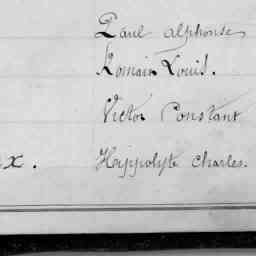 Paul alphonse
Romain Louis.
Victor Constant
x. Hippolyte Charles.